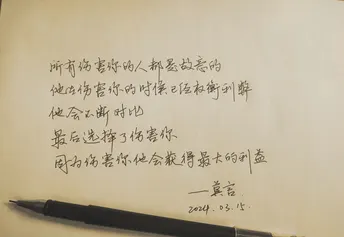 所有伤害你的人都是故意的
他在伤害你的时候已经权衡利弊
他会不断对比
最后选择了伤害你
因为伤害你他会获得最大的利益
—莫言
2024.03.15.